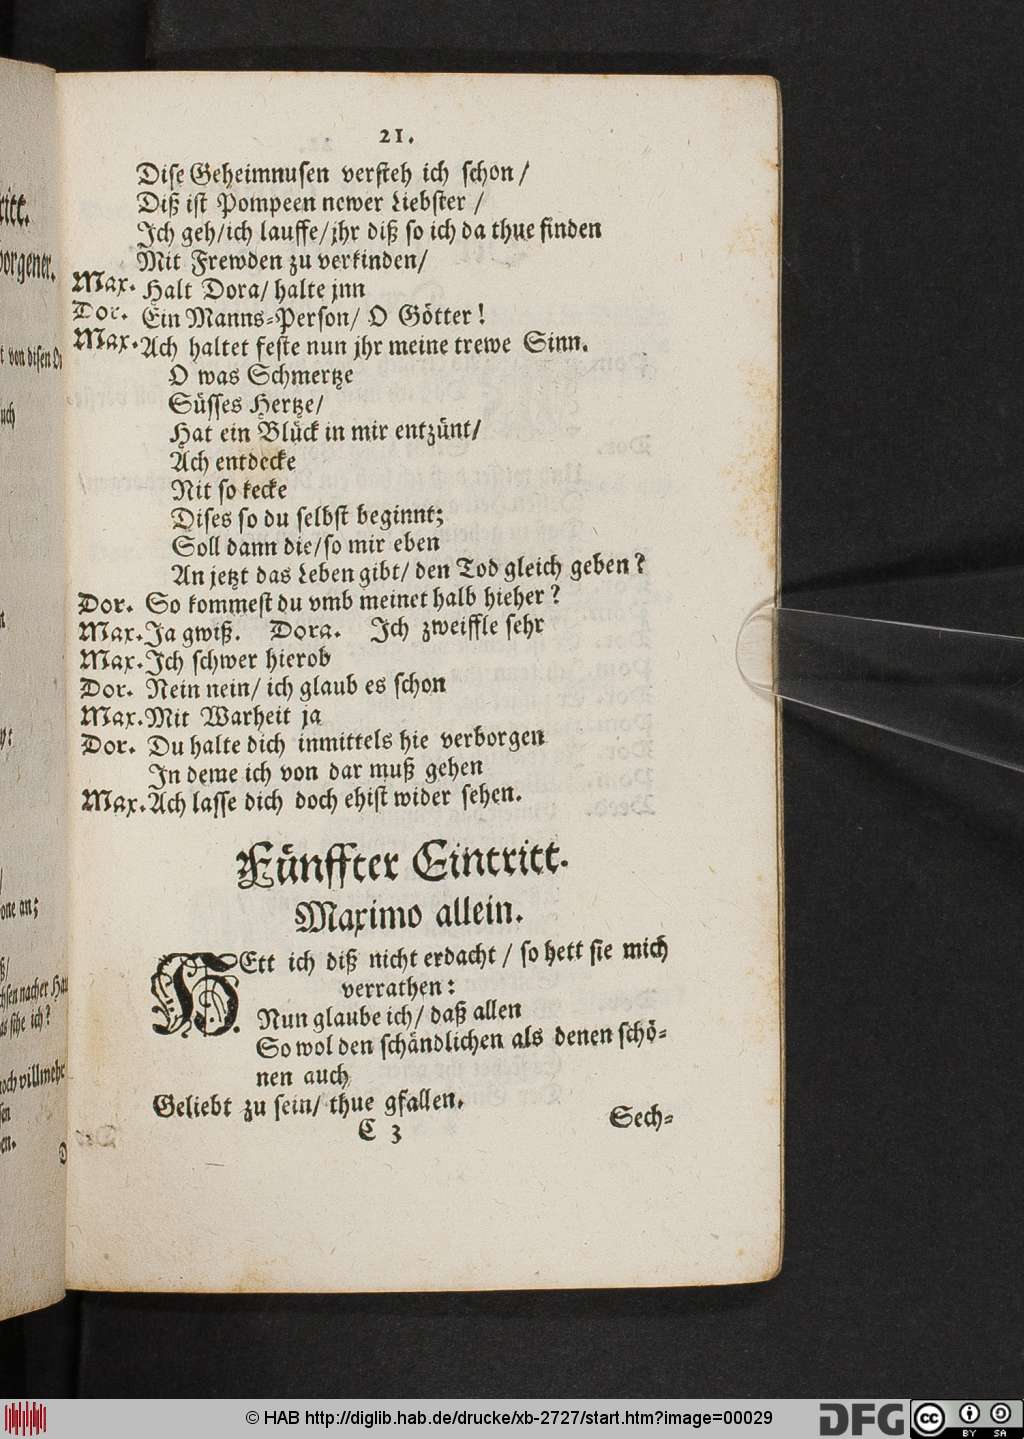 21.
Dise Geheimnusen versteh ich schon /
Diß ist Pompeen newer Liebster /
Ich geh/ich lauffe/jhr diß so ich da thue finden
Mit Frewden zu verkinden/
Max. Halt Dora/ halte jnn
Dor. Ein Manns-Person/ O Götter!
Max. Ach haltet feste nun jhr meine trewe Sinn.
O was Schmertze
Süsses Hertze/
Hat ein Blück in mir entzünt/
Ach entdecke
Nit so kecke
Dises so du selbst beginnt;
Soll dann die/so mir eben
An jetzt das Leben gibt/ den Tod gleich geben?
Dor. So kommest du vmb meinet halb hieher?
Max. Ja gwiß. Dora. Ich zweiffle sehr
Max. Ich schwer hierob
Dor. Nein nein/ ich glaub es schon
Max. Mit Warheit ja
Dor. Du halte dich inmittels hie verborgen
In deme ich von dar muß gehen
Max. Ach lasse dich doch ehist wider sehen.
Fünffter Eintritt.
Maximo allein.
HEtt ich diß nicht erdacht / so hett sie mich
verrathen:
Nun glaube ich/ daß allen
So wol den schändlichen als denen schö-
nen auch
Geliebt zu sein/ thue gfallen.
C 3
Sech-
© HAB http://diglib.hab.de/drucke/xb-2727/start.htm?image=00029
DFG
cc BY SA